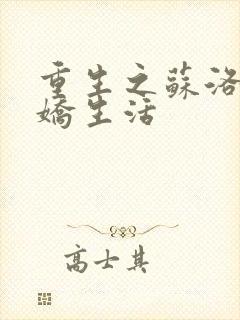 重生之蘇洛
嬌生活
高士其